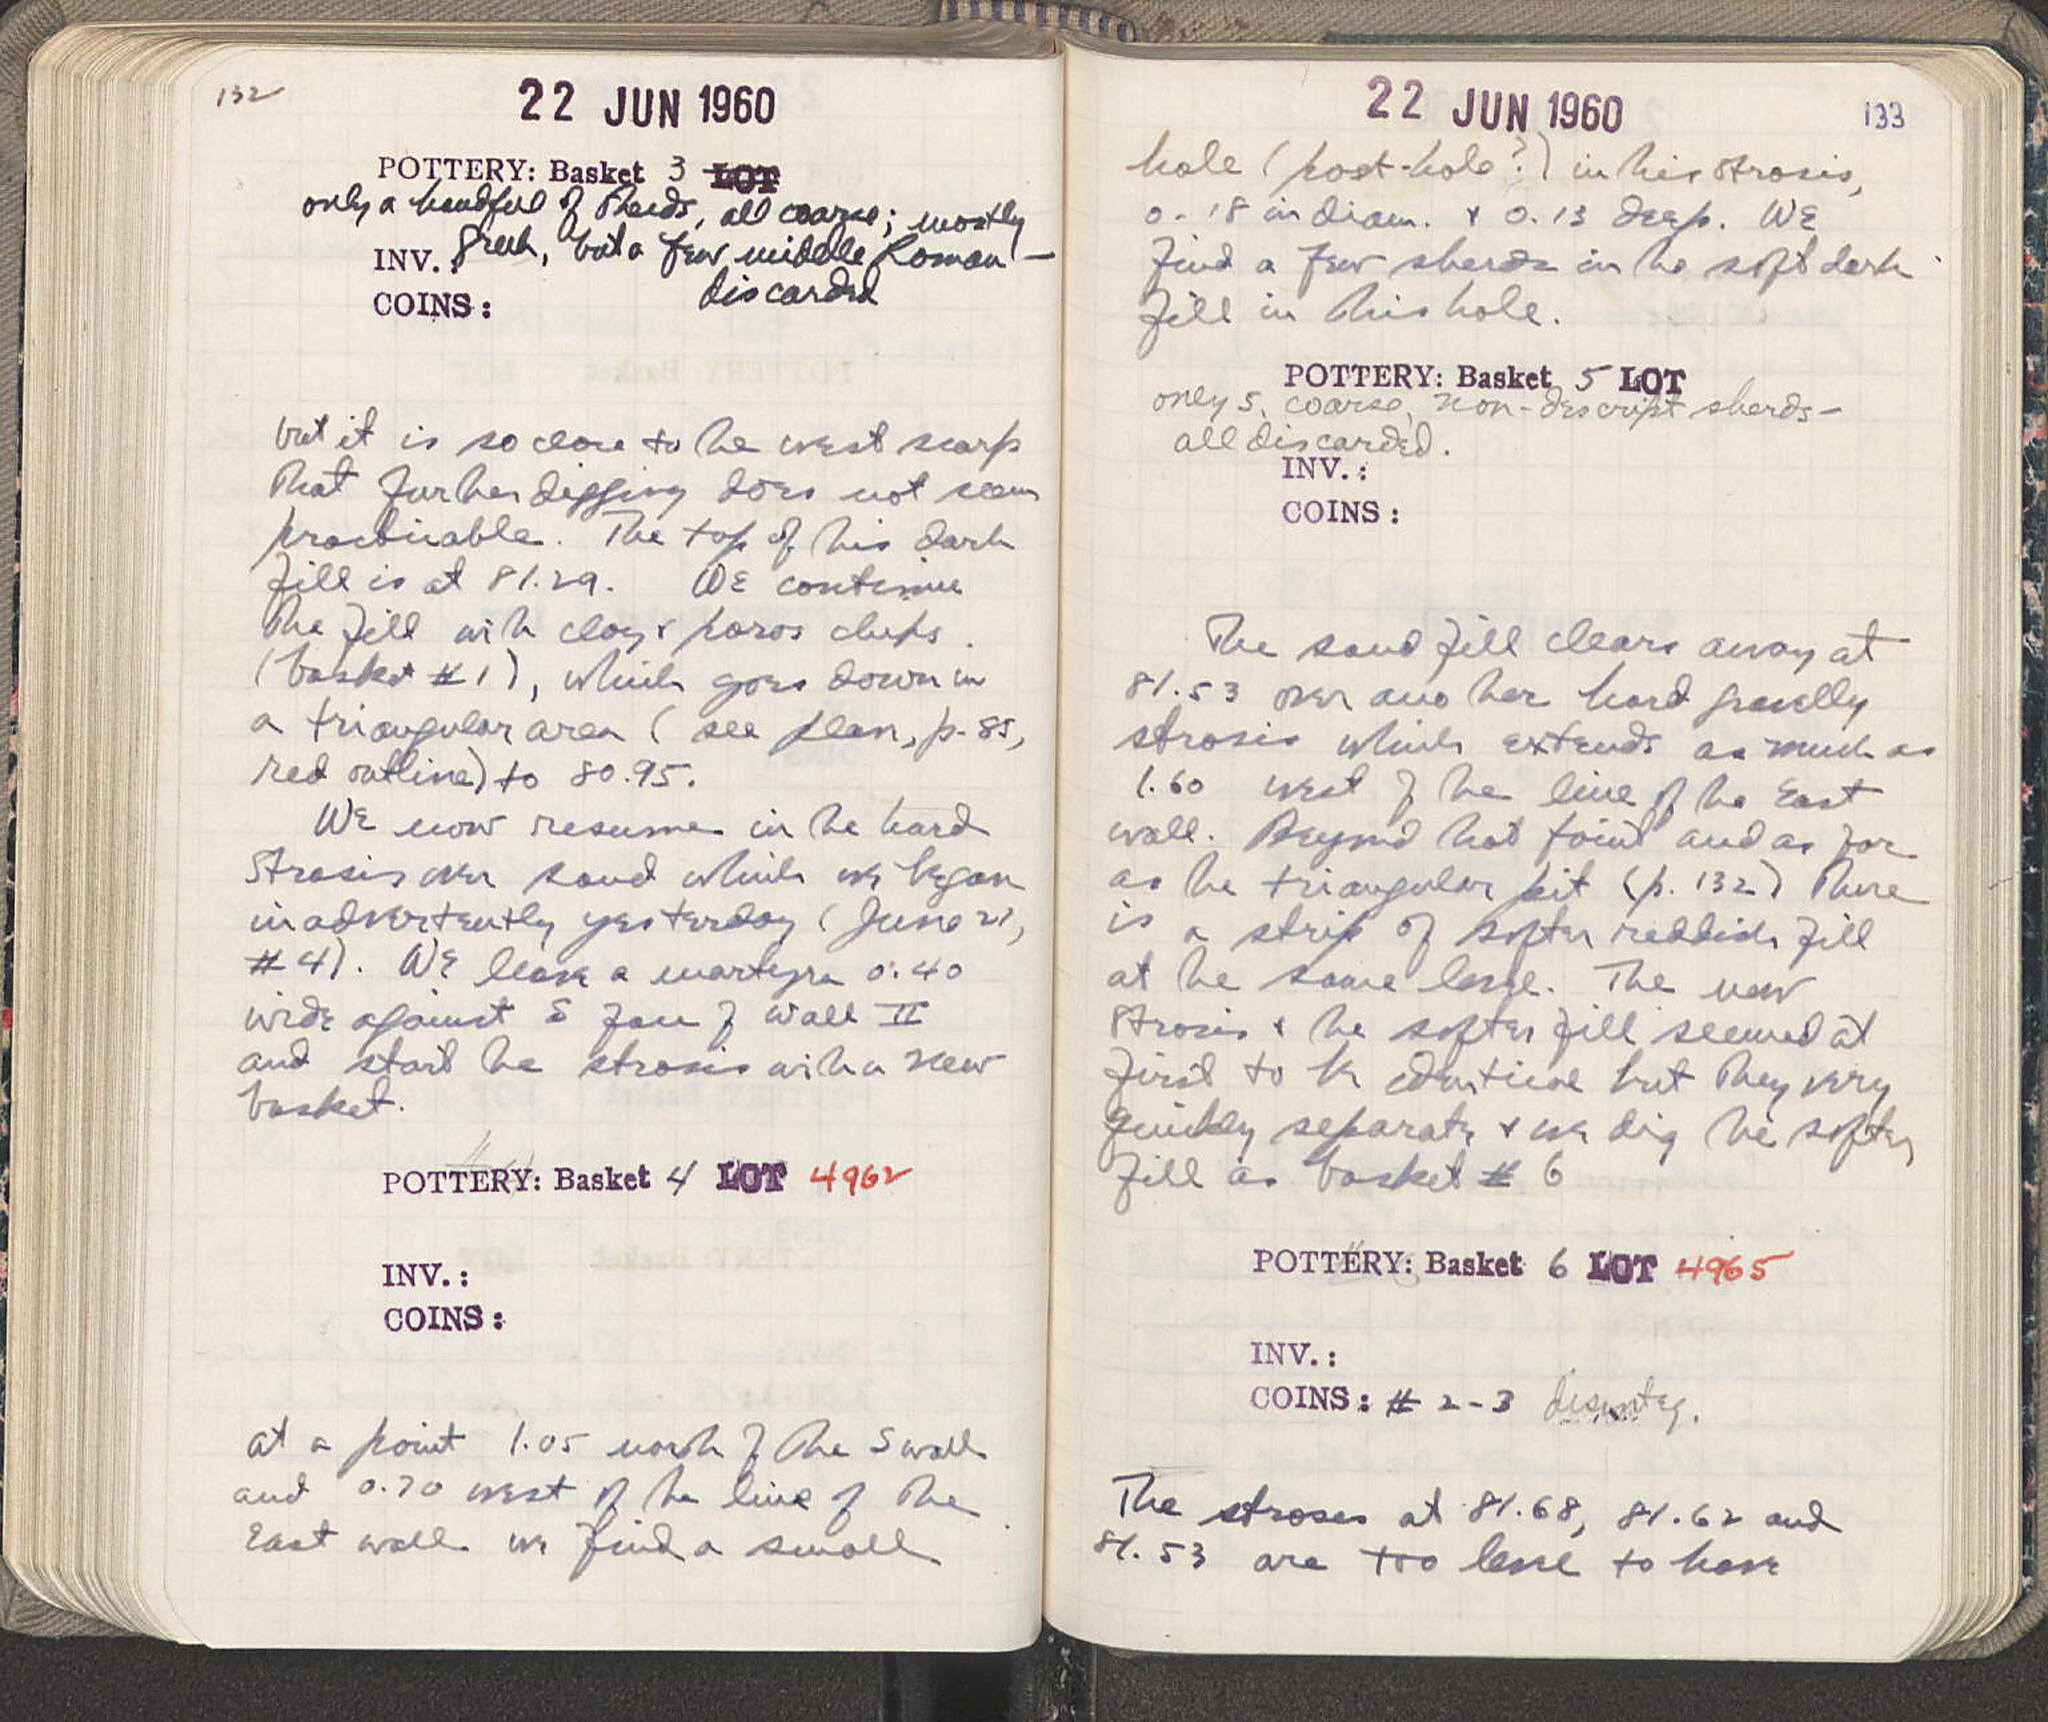 132
22 JUN 1960
POTTERY: Basket 3 LOT
only a handful of sherds, all coarse; mostly
INV.: Greek, but a few middle Roman —
COINS: discarded
but it is so close to the west scarp
that further digging does not seem
practicable. The top of this dark
fill is at 81.29. We continue
the fill with clay & poros chips
(basket #1), which goes down in
a triangular area (see plan, p. 85,
red outline) to 80.95.
We now resume in the hard
strosis over sand which we began
inadvertently yesterday (June 21,
#4). We leave a martyra 0.40
wide against S face of wall II
and start the strosis with a new
basket.
POTTERY: Basket 4 LOT 4962
INV.:
COINS:
at a point 1.05 north of the S wall
and 0.70 west of the line of the
East wall we find a small
22 JUN 1960
133
hole (post-hole?) in this strosis,
0.18 in diam. & 0.13 deep. We
find a few sherds in the soft dark
fill in this hole.
POTTERY: Basket 5 LOT
only 5, coarse, non-descript sherds—
all discarded.
INV.:
COINS:
The sand fill clears away at
81.53 over another hard gravelly
strosis which extends as much as
1.60 west of the line of the East
wall. Beyond that point and as far
as the triangular pit (p. 132) there
is a strip of softer reddish fill
at the same level. The new
strosis & the softer fill seemed at
first to be identical but they very
quickly separate & we dig the softer
fill as basket # 6
POTTERY: Basket 6 LOT 4965
INV.:
COINS: # 2-3 disinteg.
The stroses at 81.68, 81.62 and
81.53 are too level to have